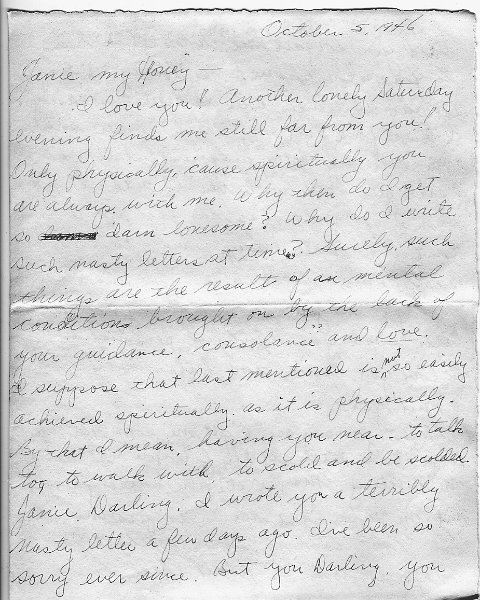 October 5, 1946
Janie my Honey —
I love you! Another lonely Saturday
evening finds me still far from you!
Only physically, 'cause spiritually you
are always with me. Why then do I get
so darn lonesome? Why do I write
such nasty letters at times? Surely, such
things are the result of a mental
conditions brought on by the lack of
your guidance, consolance and love.
I suppose that last mentioned is not so easily
achieved spiritually as it is physically.
By that I mean, having you near - to talk
too, to walk with, to scold and be scolded.
Janie, Darling, I wrote you a terribly
nasty letter a few days ago. I've been so
sorry ever since. But you Darling, you